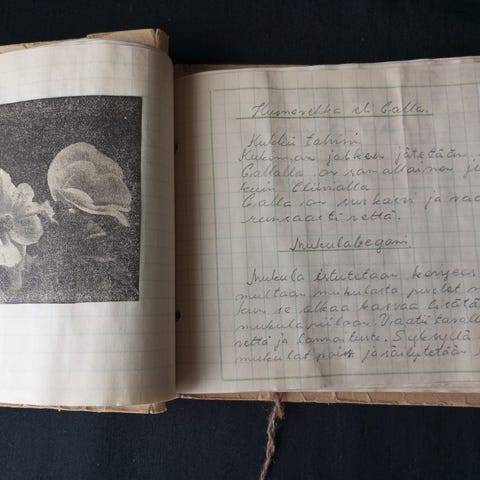 Huonevehka eli Calla.
Kukkii talvisin
Kukinnan jälkeen jätetään
Callalla on samallainen
kuin Clivialla
Calla on suurkasvi ja
runsaasti vettä.
Mukulabegoni
Mukula istutetaan
multaan mukulasta puolet
kun se alkaa kasvaa lisätä
mukula piiloon. Vaatii
vettä ja lannoitusta. Syksyllä
mukulat pois ja säilytetään